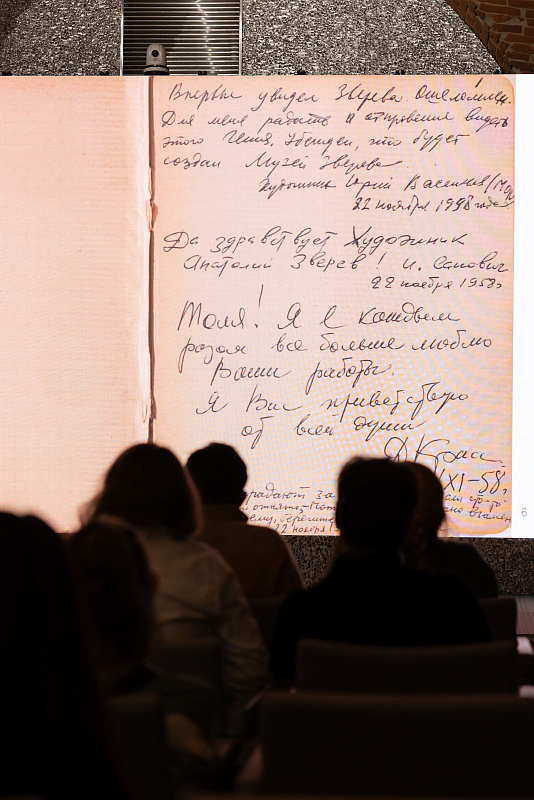 Впервые увидел Зверева. Ошеломлен.
Для меня радость и откровение видеть
этого Гения. Убежден, что будет
создан Музей Зверева.
Художник Юрий Васильев /МОН
22 ноября 1958 года
Да здравствует Художник
Анатолий Зверев! И.
22 ноября 1958г
Толя! Я с каждым
разом все больше люблю
Ваши работы.
Я Вас приветствую
от всей души
XI-58г
радают за
отнять,
ему, берегите
22 ноября
6